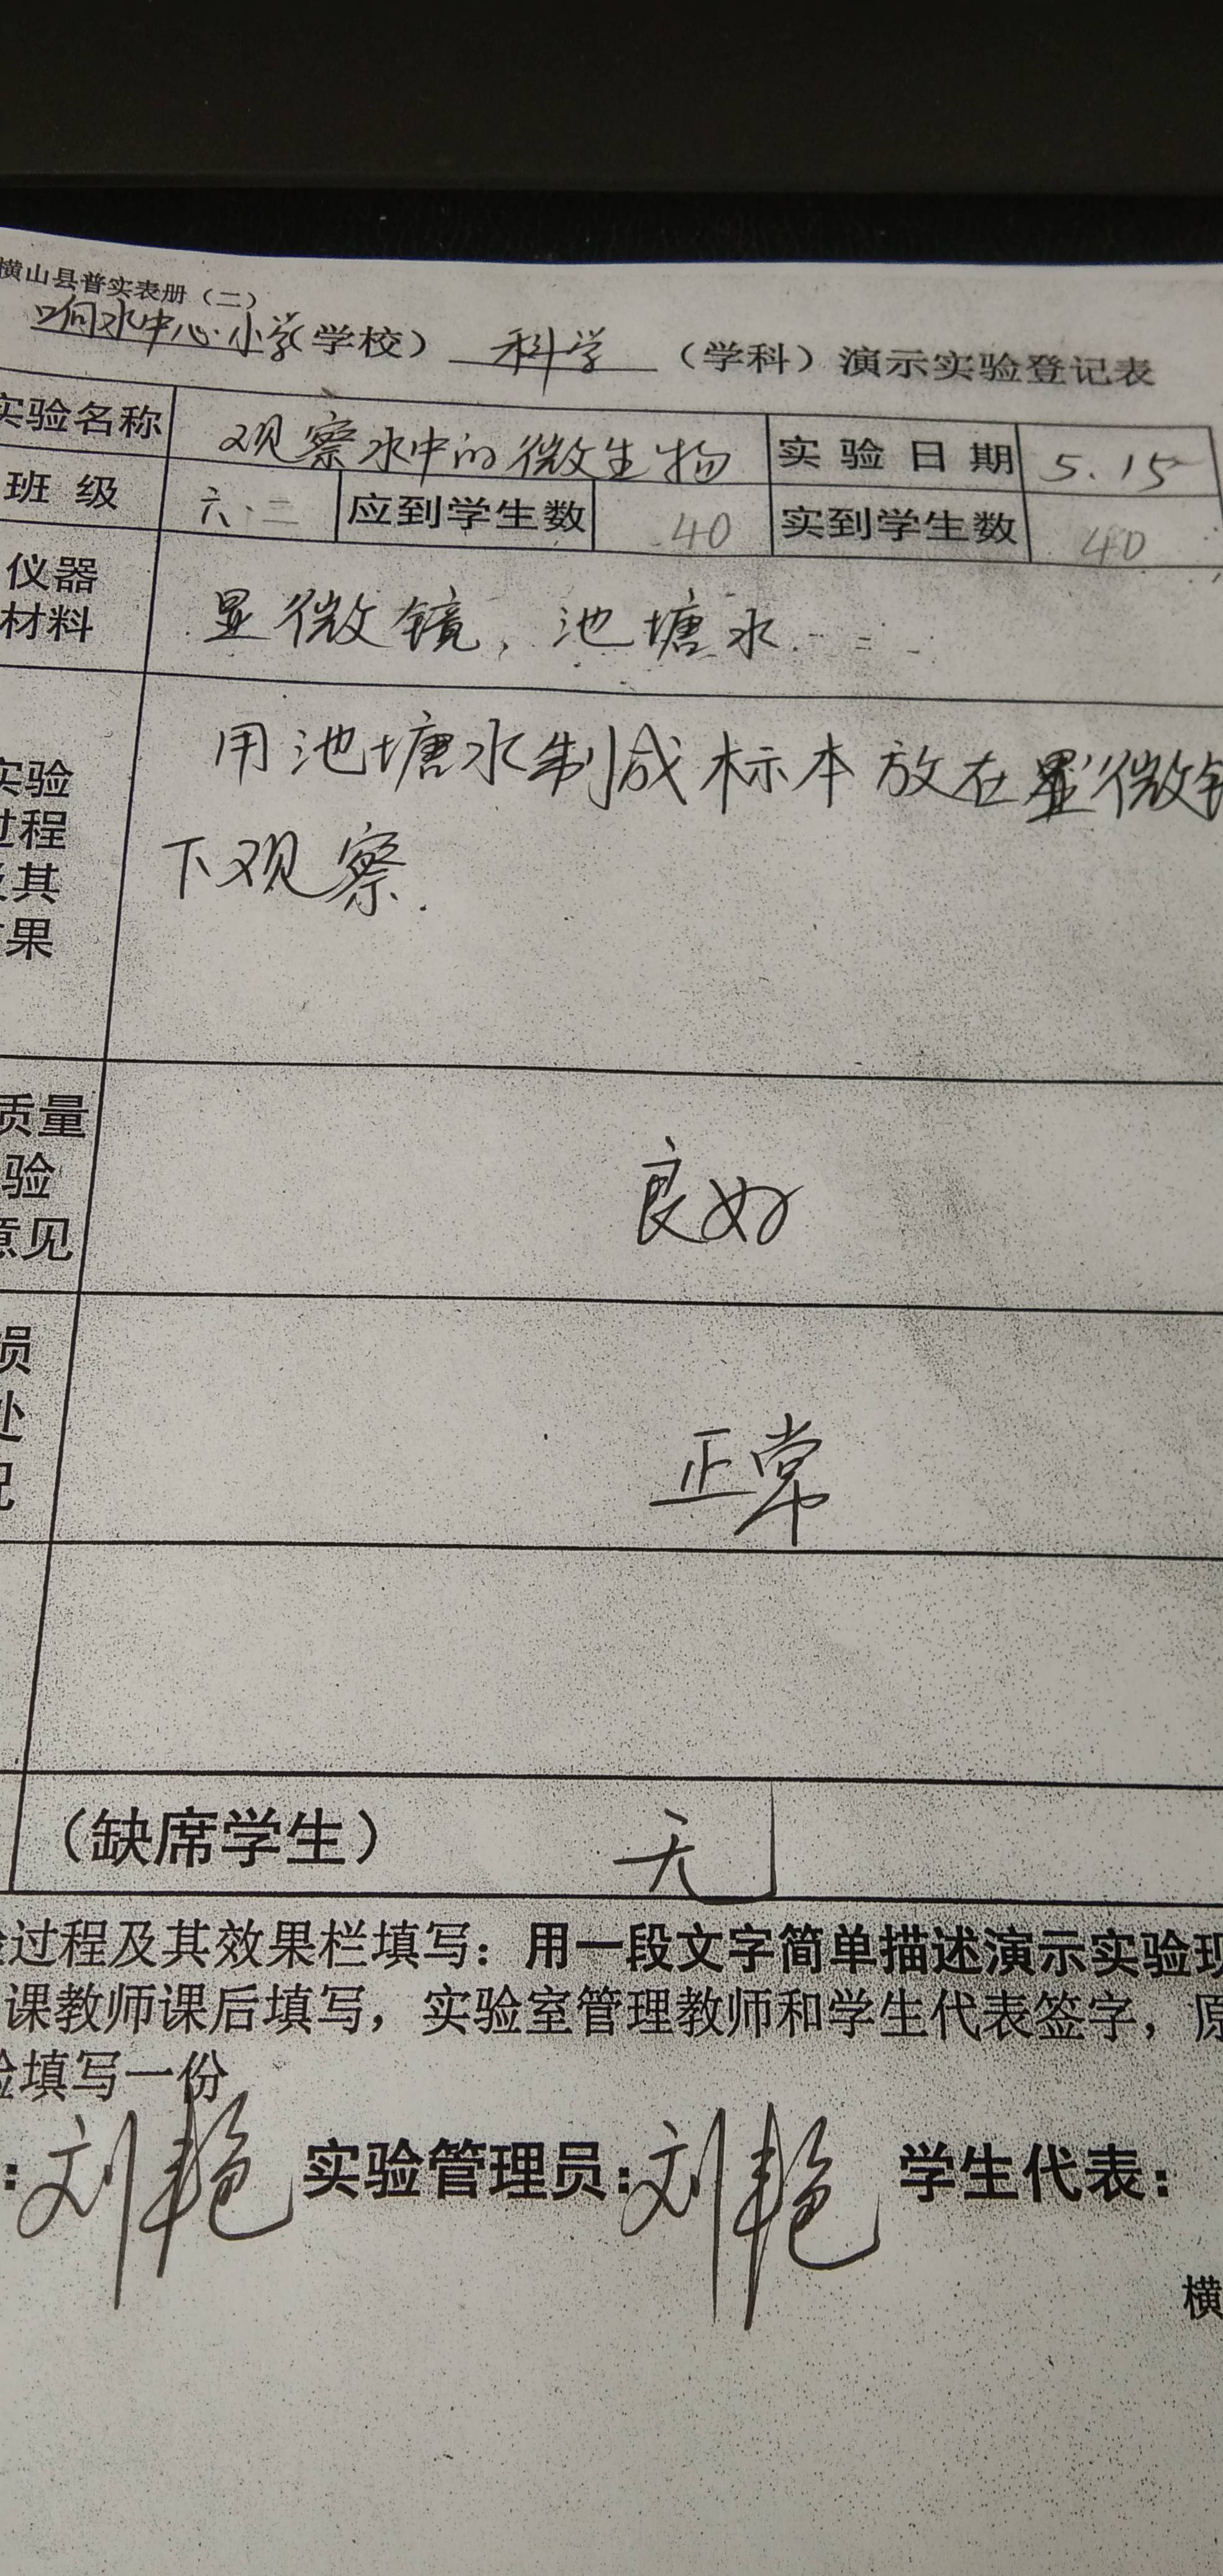 横山县普实表册（二）
响水中心小学（学校） 科学 （学科）演示实验登记表
实验名称 观察水中的微生物 实验日期 5.15
班级 六.二 应到学生数 40 实到学生数 40
仪器
材料 显微镜，池塘水
用池塘水制成标本放在显微镜
实验
过程 下观察.
及其
效果
质量
验 良好
意见
损
处 正常
况
（缺席学生） 无
过程及其效果栏填写：用一段文字简单描述演示实验现
课教师课后填写，实验室管理教师和学生代表签字，原
验填写一份
：刘艳 实验管理员：刘艳 学生代表：
横